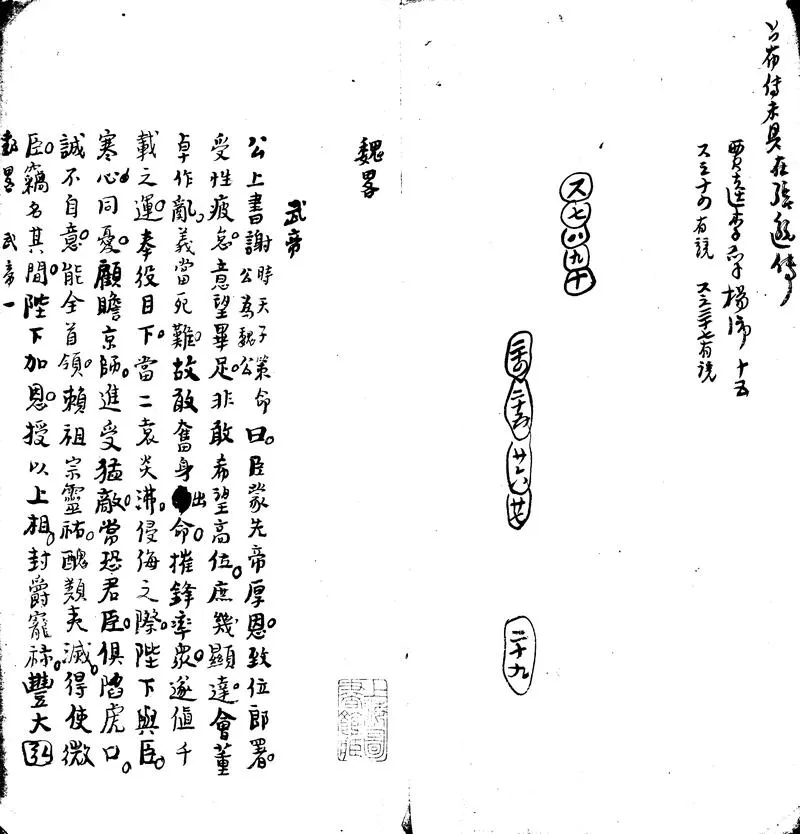 賈逵李孚楊沛十五
二十九
魏畧
武帝
公上書謝時天子策命公為魏公曰。臣蒙先帝厚恩。致位郎署。
受性疲怠。意望畢足。非敢希望高位。庶幾顯達。會董
卓作亂。義當死難。故敢奮身出命。摧鋒率衆。遂值千
載之運。奉役目下。當二袁炎沸。侵侮之際。陛下與臣。
寒心同憂。顧瞻京師。進受猛敵。常恐君臣。俱陷虎口。
誠不自意。能全首領。賴祖宗靈祐。醜類夷滅。得使微
臣。竊名其間。陛下加恩。授以上相。封爵寵祿。豐大弘
魏畧 武帝 一